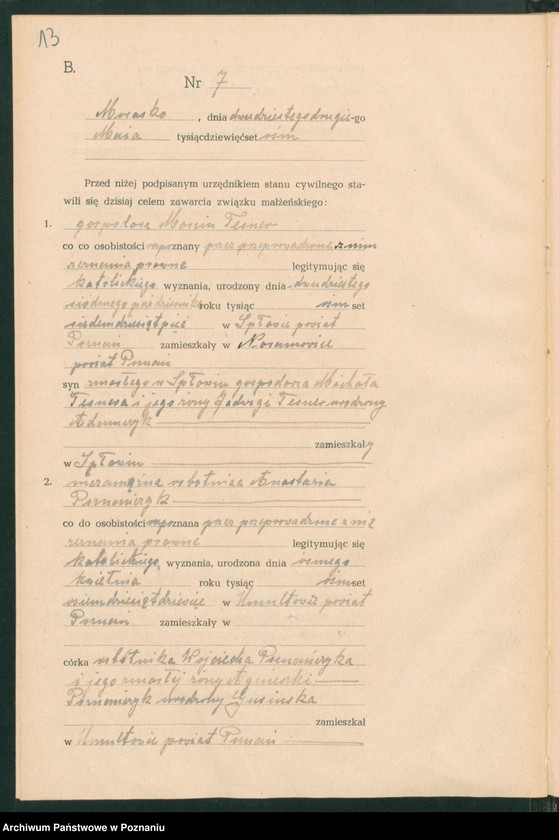 13
B.
Nr 7
Morasko, dnia dwudziestegodrugie-go
Maia tysiącdziewięćset ośm
Przed niżej podpisanym urzędnikiem stanu cywilnego sta-
wili się dzisiaj celem zawarcia związku małżeńskiego:
1. gospodarz Marcin Tesner
co co osobistości rozpoznany przez przeprowadzone z nim
zeznania prawne legitymując się
katolickiego wyznania, urodzony dnia dwudziestego
siódmego października roku tysiąc ośm set
siedemdziesiątpięć w Spławie powiat
Poznań zamieszkały w
powiat Poznań
syn zmarłego w Spławiu gospodarza Michała
Tesnera i jego żony Jadwigi Tesner urodzony
Adamczyk
zamieszkały
w Spławiu
2. niezamężna robotnica Anastazia
co do osobistości rozpoznana przez przeprowadzone z nią
zeznania prawne legitymując się
katolickiego, wyznania, urodzona dnia ósmego
kwietnia roku tysiąc ośmset
ośmdziesiątdziewięć w Umultowie powiat
Poznań zamieszkały w
córka robotnika Wojciecha
i jego zmarłej żony Agnieszki
urodzony
zamieszkał
w Umultowie powiat Poznań
Archiwum Państwowe w Poznaniu